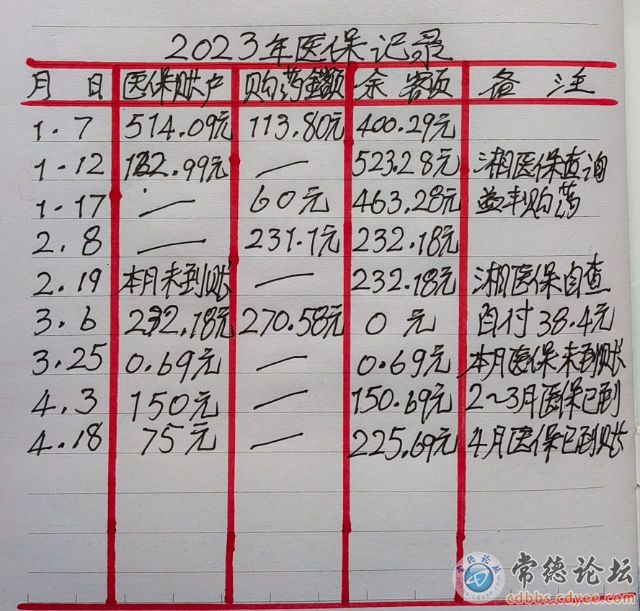 2023年医保记录
月 日 医保账户 购药金额 余额 备注
1.7 514.09元 113.80元 400.29元
1.12 122.99元 — 523.28元 湘医保查询
1.17 — 60元 463.28元 益丰购药
2.8 — 231.1元 232.18元
2.19 本月未到账 — 232.18元 湘医保自查
3.6 232.18元 270.58元 0元 自付38.4元
3.25 0.69元 — 0.69元 本月医保未到账
4.3 150元 — 150.69元 2~3月医保已到
4.18 75元 — 225.69元 4月医保已到账
常德论坛
cdbbs.cdyee.com